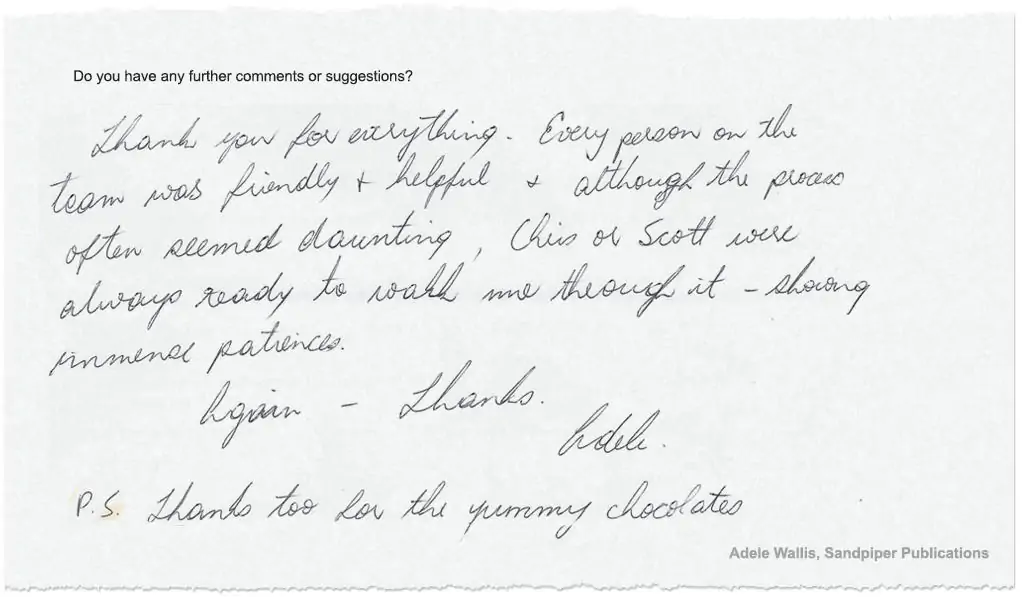 Do you have any further comments or suggestions?
Thank you for everything. Every person on the
team was friendly + helpful + although the process
often seemed daunting, Chris or Scott were
always ready to walk me through it – showing
immense patiences.
Again – Thanks.
Adele.
P.S. Thanks too for the yummy chocolates
Adele Wallis, Sandpiper Publications